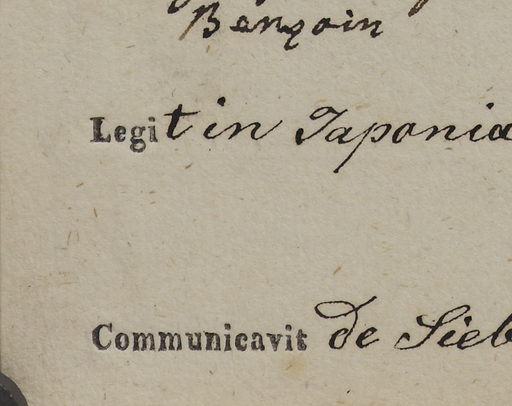 Benzoin
Legit in Japonia
Communicavit de Sieb